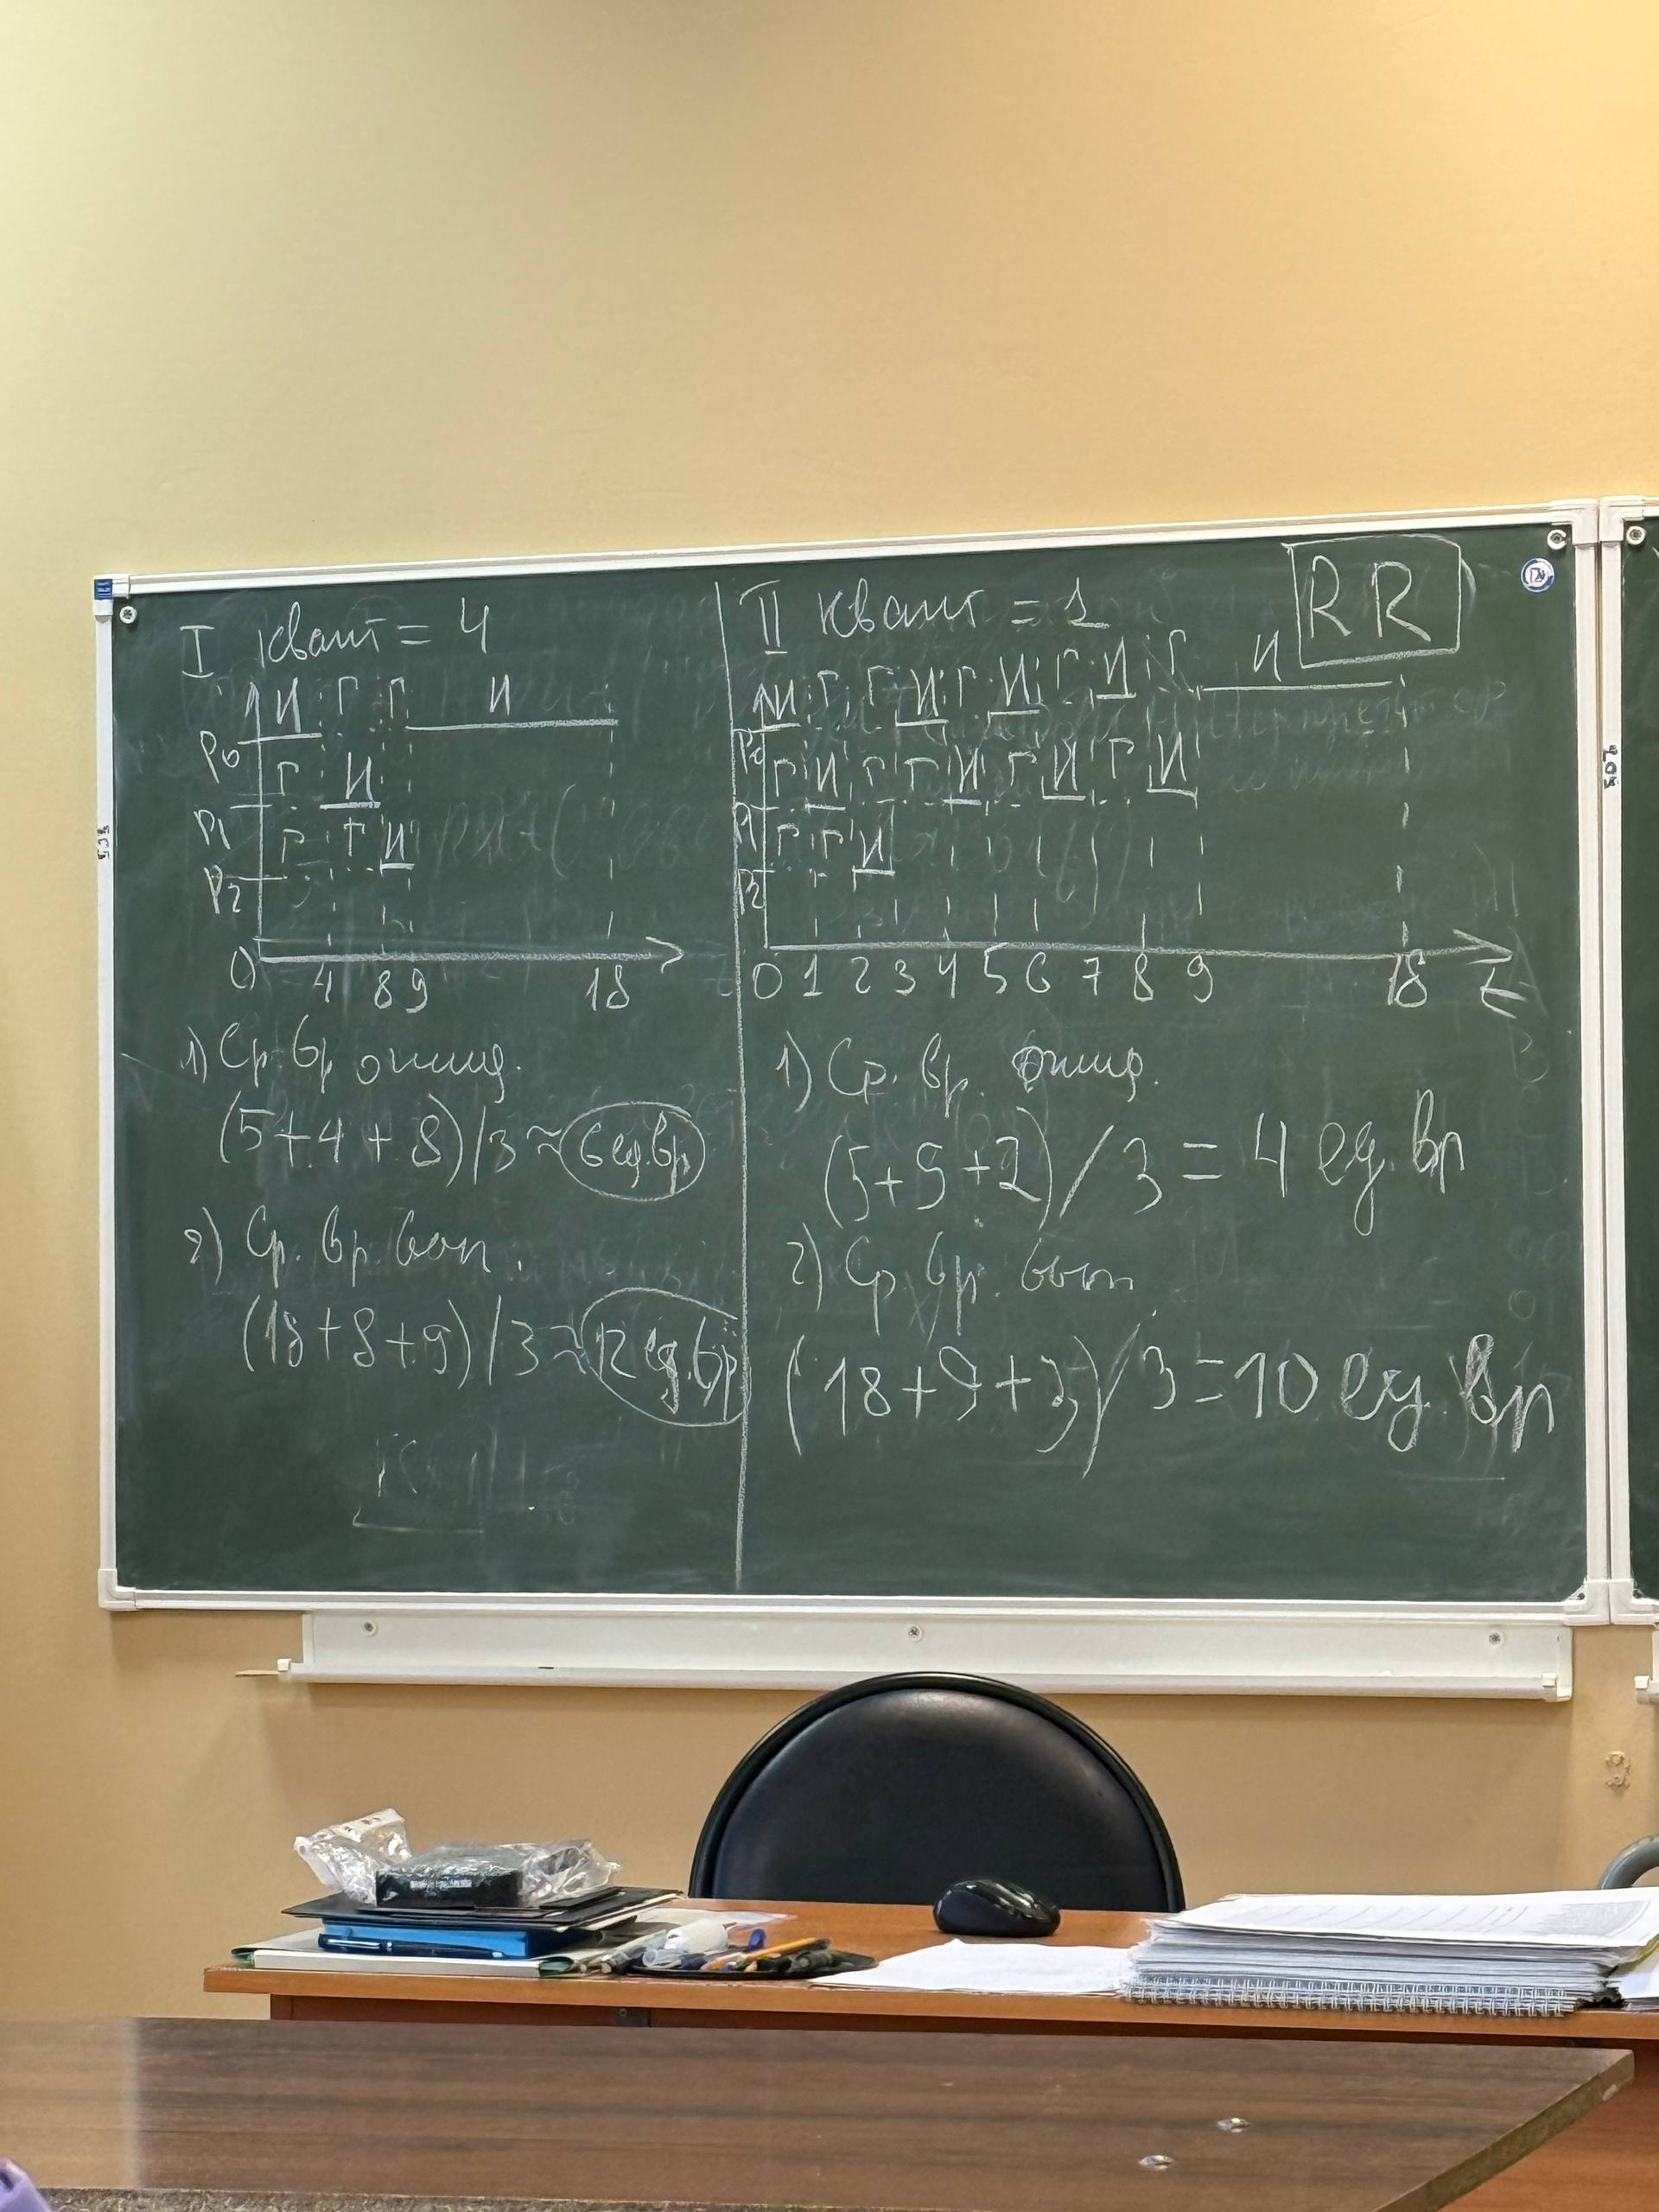 I квант = 4
И Г Г И
P0
Г И
P1
Г Г И
P2
0 4 8 9 18
1) Ср. вр ожид.
(5+4+8)/3 ≈ 6 ед.вр
2) Ср. вр. вып.
(18+8+9)/3 ≈ 12 ед.вр
II квант = 1
RR
И Г Г И Г И Г И Г И
P0
Г И Г Г И Г И Г И
P1
Г Г И
P2
0 1 2 3 4 5 6 7 8 9 18 t
1) Ср. вр. ожид.
(5+5+2)/3 = 4 ед. вр
2) Ср. вр. вып
(18+9+3)/3 = 10 ед. вр
505
507